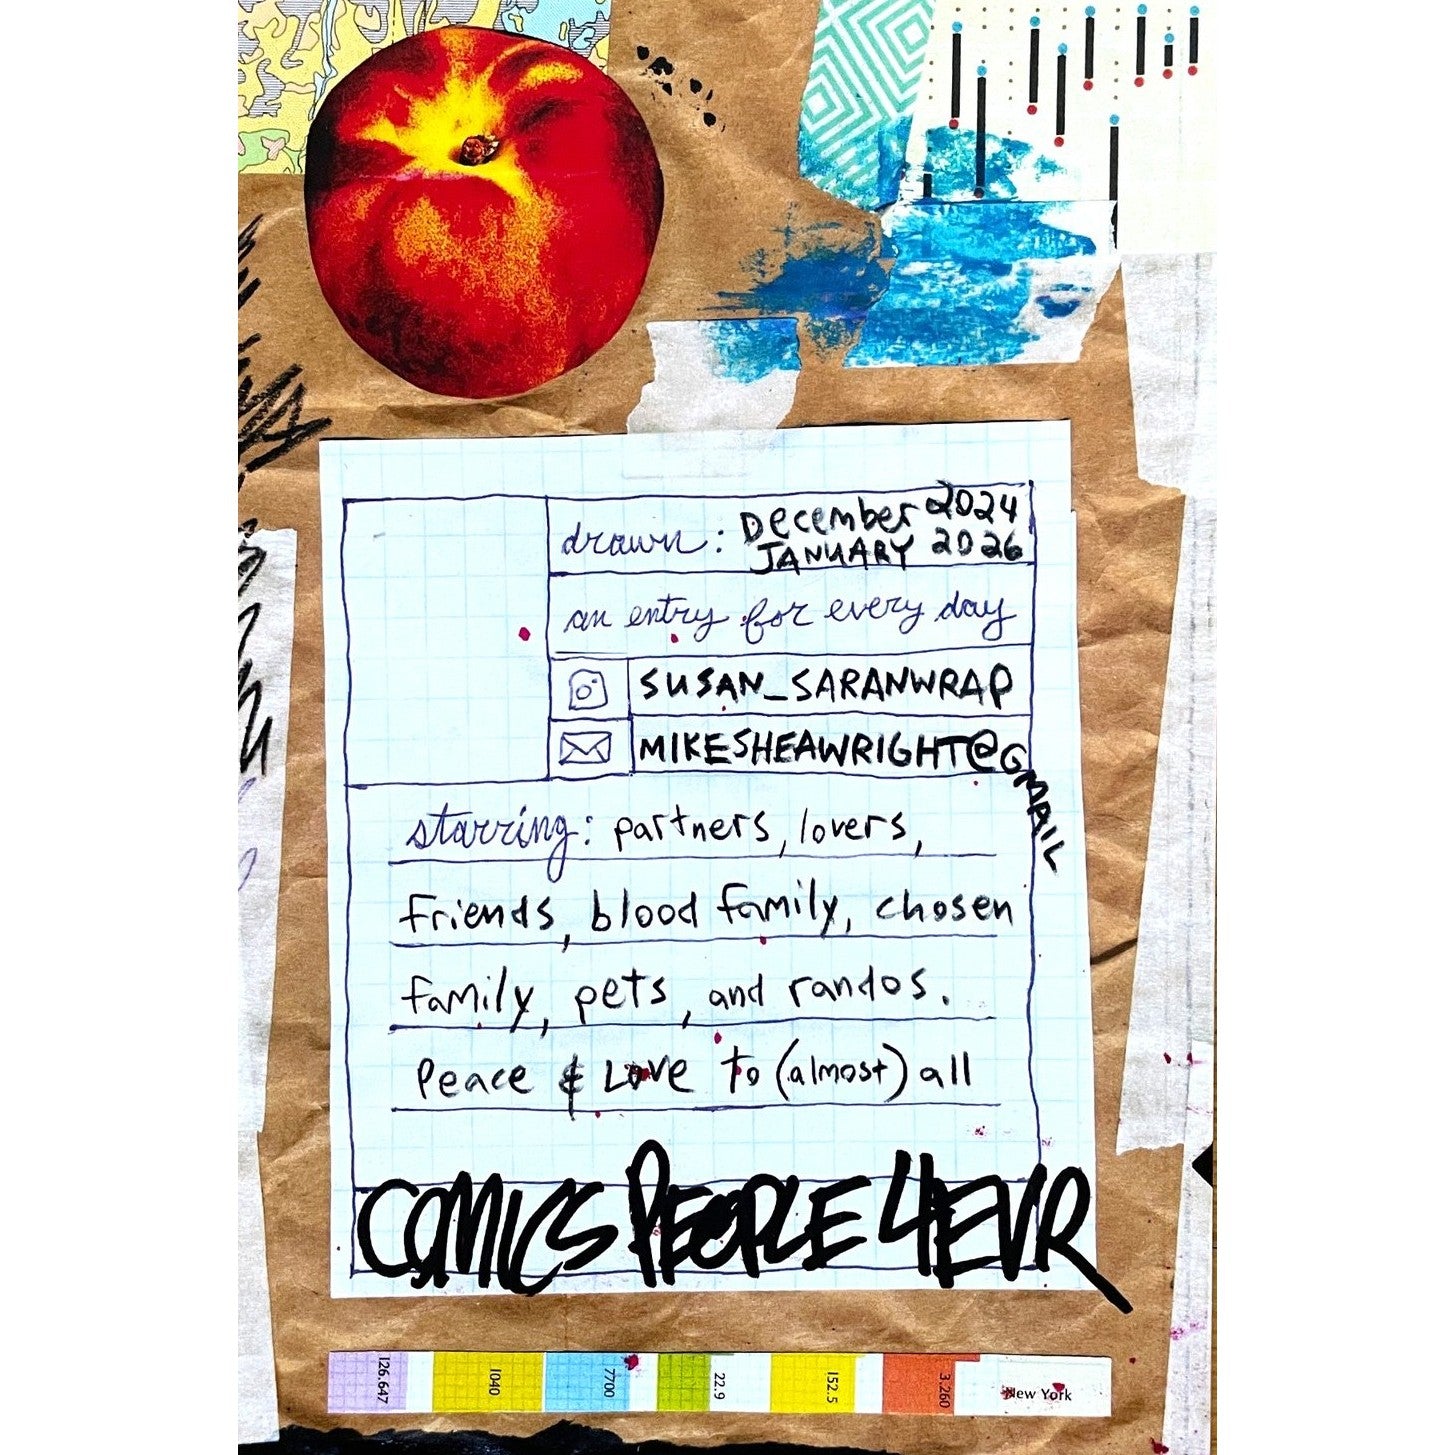 drawn: December 2024
JANUARY 2026
an entry for every day
SUSAN_SARANWRAP
MIKESHEAWRIGHT@GMAIL
starring: partners, lovers,
friends, blood family, chosen
family, pets, and randos.
Peace & Love to (almost) all
COMICS PEOPLE 4EVR
126.647
1040
7700
22.9
152.5
3.260
New York